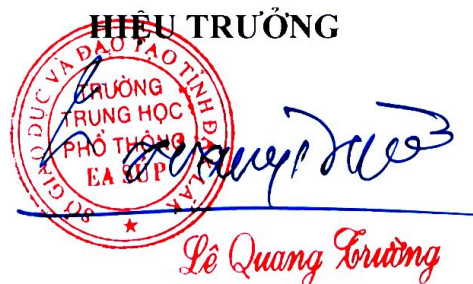 HIỆU TRƯỞNG
SỞ GIÁO DỤC VÀ ĐÀO TẠO TỈNH ĐẮK LẮK
TRƯỜNG
TRUNG HỌC
PHỔ THÔNG
EA SÚP
Lê Quang Trường